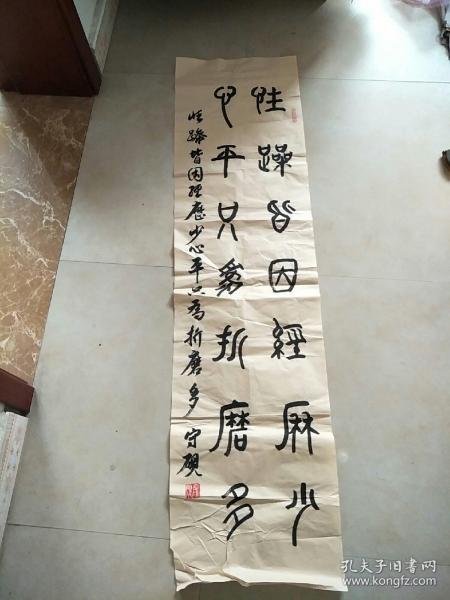 性躁皆因經歷少
心平只為折磨多
性躁皆因經歷少心平只為折磨多 守硯
孔夫子旧书网
www.kongfz.com